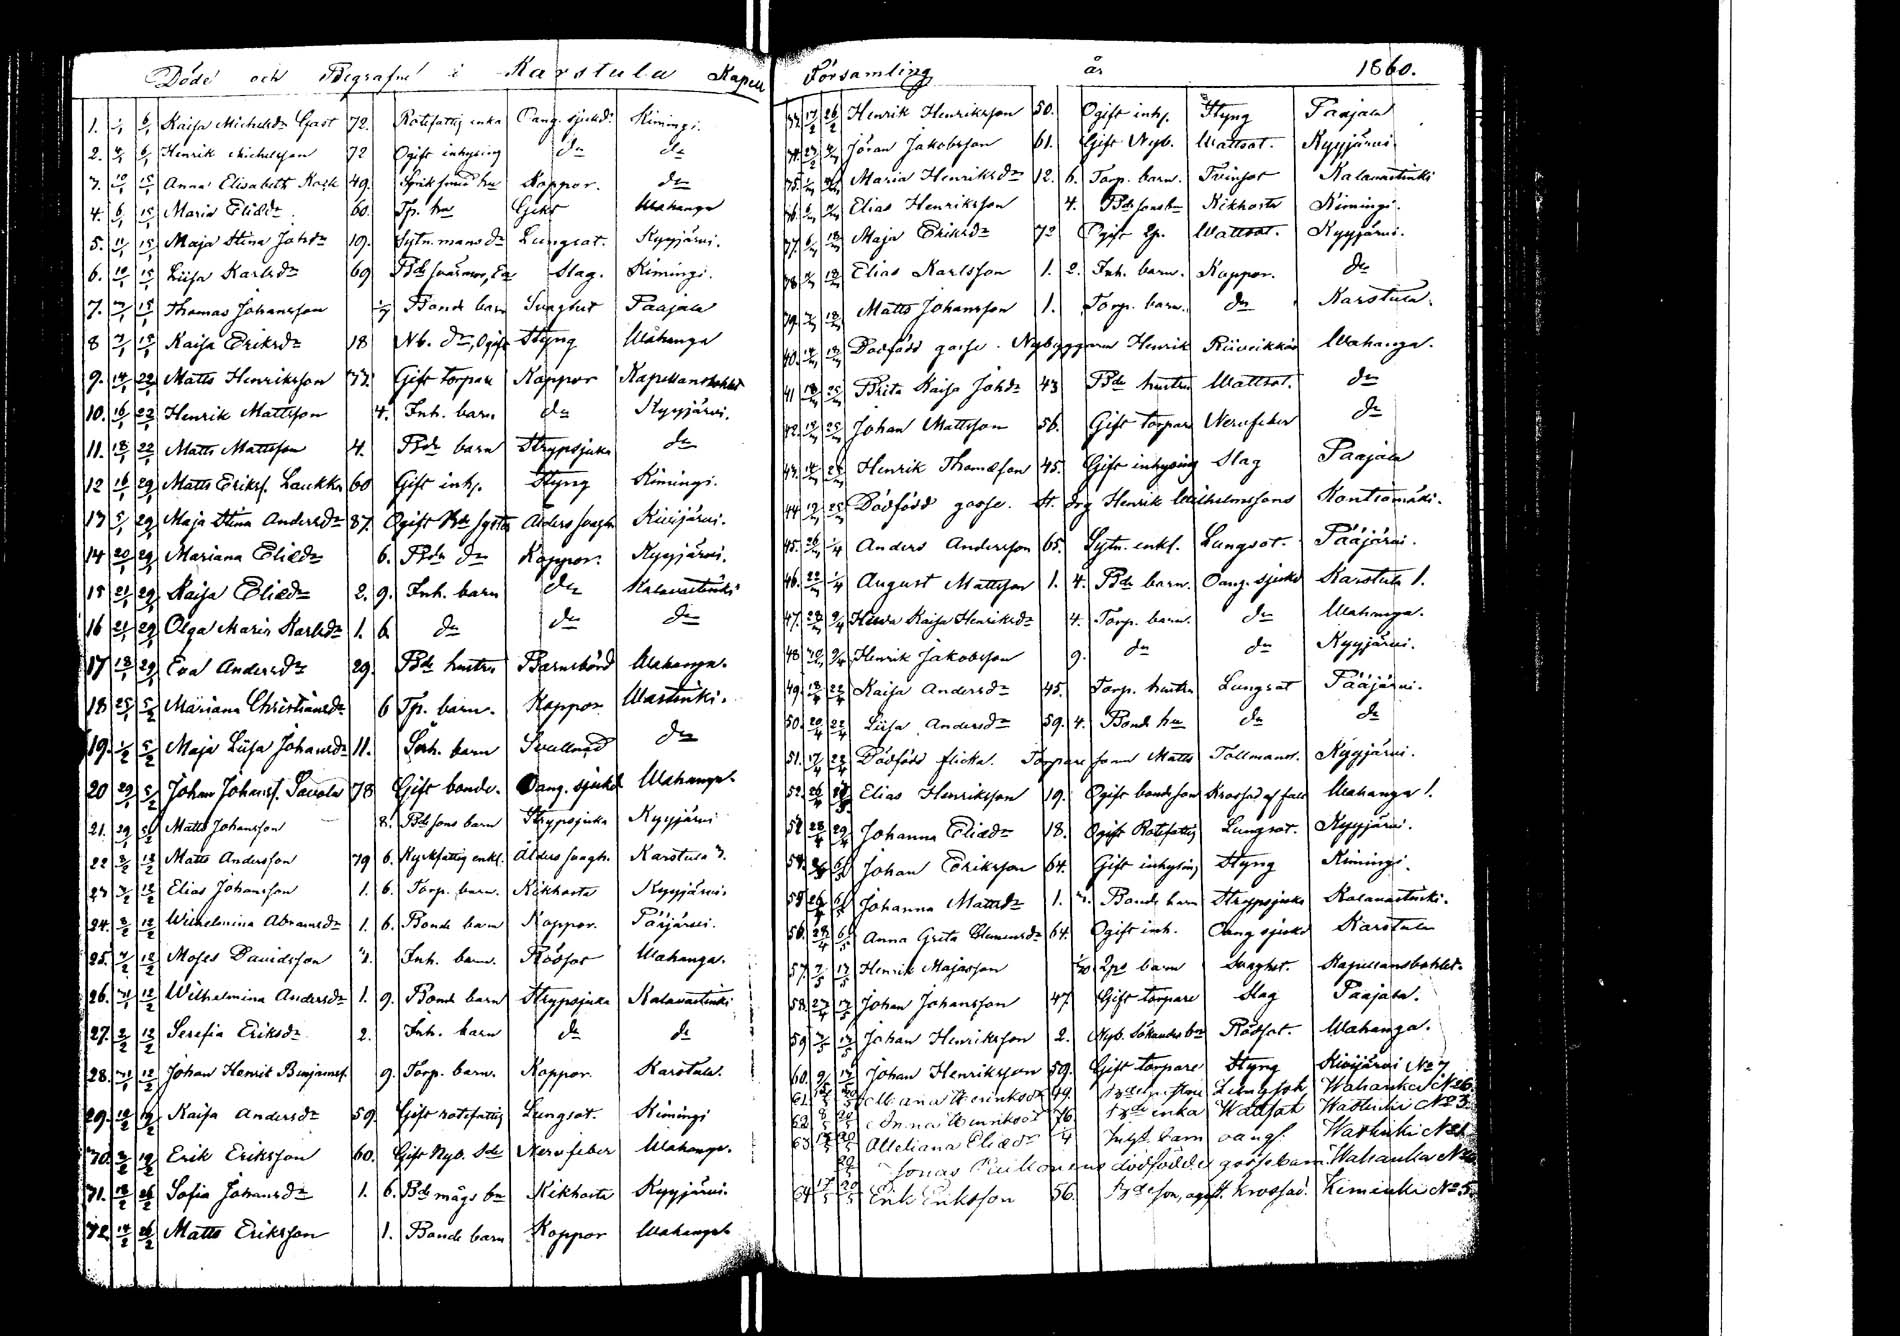 Döde och Begrafne i Karstula Kapell
1. 1/1 6/1 Kaisa Michelsdr Gast 72. Rotefattig enka Oang. sjukd. Kimingi.
2. 4/1 6/1 Henrik Michelsson 72 Ogift inhysing do do
3. 10/1 15/1 Anna Elisabeth Kock 49. hu Koppor. do
4. 6/1 15/1 Maria Eliædr 60. Tp. hu Gikt Wahanga
5. 11/1 15/1 Maja Stina Johdr 19. Sytn.mans dr Lungsot. Kyyjärvi.
6. 10/1 15/1 Liisa Karlsdr 69 Bde Slag. Kimingi.
7. 7/1 15/1 Thomas Johansson Bonde barn Svaghet Paajala
8 7/1 15/1 Kaisa Eriksdr 18 Nb. dr, Ogift Styng Wahanga
9. 14/1 22/1 Matts Henriksson 33. Gift torpare Koppor Kapellansbohlet
10. 16/1 22/1 Henrik Mattsson 4. Inh. barn do Kyyjärvi.
11. 18/1 22/1 Matts Mattsson 4. Bde barn Strypsjuka do
12 16/1 29/1 Matts Eriks. Laukka 60 Gift inh. Styng Kimingi.
13 5/1 29/1 Maja Stina Andersdr 87. Ogift Bde syster Ålders svagh. Kivijärvi.
14 20/1 29/1 Mariana Eliædr 6. Bde dr Koppor. Kyyjärvi.
15 21/1 29/1 Kaisa Eliædr 2. 9. Inh. barn do Kalavastinki
16 21/1 29/1 Olga Maria Karlsdr 1. 6. do do do
17 18/1 29/1 Eva Andersdr 29. Bde hustru Barnsbörd Wahanga.
18 25/1 5/2 Mariana Christiansdr 6 Tp. barn. Koppor Wastinki.
19. 1/2 5/2 Maja Liisa Johansdr 11. Inh. barn Svullnad do
20 29/1 5/2 Johan Johans. Savola 78 Gift bonde. Oang. sjukd Wahanga.
21. 29/1 5/2 Matts Johansson 8. Bde sons barn Strypsjuka Kyyjärvi
22 2/2 12/2 Matts Andersson 79 6. Kyrkfattig enkl. Ålders svagh. Karstula 3.
23 3/2 12/2 Elias Johansson 1. 6. Torp. barn. Kikhosta Kyyjärvi.
24. 2/2 12/2 Wilhelmina Abramsdr 1. 6. Bonde barn Koppor. Pääjärvi.
25. 4/2 12/2 Moses Davidsson 3. Inh. barn. Rödsot Wahanga.
26. 31/1 12/2 Wilhelmina Andersdr 1. 9. Bonde barn Strypsjuka Kalavastinki
27. 2/2 12/2 Serefia Eriksdr 2. Inh. barn do do
28. 31/1 12/2 Johan Henrik Benjamins. 9. Torp. barn. Koppor. Karstula.
29. 12/2 19/2 Kaisa Andersdr 59. Gift rotefattig Lungsot. Kimingi
30. 2/2 19/2 Erik Eriksson 60. Gift Nyb. Nervfeber Wahanga.
31. 18/2 26/2 Sofia Johansdr 1. 6. Bde mågs bn Kikhosta Kyyjärvi.
32 14/2 26/2 Matts Eriksson 1. Bonde barn Koppor Wahanga.
Församling år 1860.
33. 17/2 26/2 Henrik Henriksson 50. Ogift inh. Styng Paajala
34. Jöran Jakobsson 61. Gift Nyb. Wattsot. Kyyjärvi
35. Maria Henriksdr 12. 6. Torp. barn. Tvinsot Kalavastinki
36. Elias Henriksson 4. Bde sons bn Kikhosta Kimingi.
37. Maja Eriksdr 72 Ogift Wattsot. Kyyjärvi.
38 Elias Karlsson 1. 2. Inh. barn. Koppor. do
39. Matts Johansson 1. Torp. barn. do Karstula.
40. Dödfödd gosse. Nybyggaren Henrik Riiveikkäs Wahanga.
41 Brita Kaisa Johdr 43 Bde hustru Wattsot. do
42. Johan Mattsson 56. Gift torpare Nervfeber do
43. Henrik Thomasson 45. Gift inhysing Slag Paajala
44 Dödfödd gosse. St. drg Henrik Wilhelmssons Kontiomäki.
45. Anders Andersson 65. Sytn. enkl. Lungsot. Pääjärvi.
46. August Mattsson 1. 4. Bde barn. Oang. sjukd Karstula 1.
47. Kaisa Henriksdr 4. Torp. barn. do Wahanga.
48 Henrik Jakobsson 9. do do Kyyjärvi.
49. 18/4 22/4 Kaisa Andersdr 45. Torp. hustru Lungsot Pääjärvi.
50. 20/4 22/4 Liisa Andersdr 59. 4. Bonde hu do do
51. 17/4 22/4 Dödfödd flicka. Torpare sonen Matts Tollmans. Kyyjärvi.
52. Elias Henriksson 19. Ogift bondeson Krossad af fall Wahanga 1.
53 28/4 29/4 Johanna Eliædr 18. Ogift Rotefattig Lungsot. Kyyjärvi.
54. Johan Eriksson 64. Gift inhysing Styng Kimingi.
55 26/4 6/5 Johanna Mattsdr 1. 3. Bonde barn Strypsjuka Kalavastinki.
56. 28/4 6/5 Anna Greta Clemensdr 64. Ogift inh. Oang sjukd Karstula
57. 3/5 13/5 Henrik Majasson barn Svaghet. Kapellansbohlet.
58. 27/4 13/5 Johan Johansson 47. Gift torpare Slag Paajala.
59 Johan Henriksson 2. Nyb. Sökandes bn Rödsot. Wahanga.
60. Johan Henriksson 59. Gift torpare Styng Kivijärvi No 7
61. Mariana Henriksdr 49. Lungsot Wahanka No 6.
62 Anna Henriksdr 76. Bde enka Wattsot Wastinki No 3.
63 Meliana Eliædr 4 Inhys. barn oangf. Wastinki No 1
Jonas dödfödde gossebarn. Wahanka No
64 17/5 20/5 Erik Eriksson 56. Bdeson, ogift. krossad. Kiminki No 5.